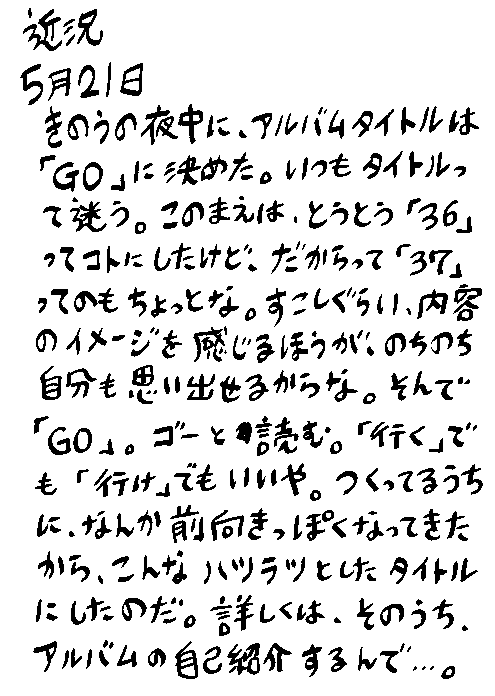 近況
5月21日
きのうの夜中に、アルバムタイトルは
「GO」に決めた。いつもタイトルっ
て迷う。このまえは、とうとう「36」
ってコトにしたけど、だからって「37」
ってのもちょっとな。すこしぐらい、内容
のイメージを感じるほうが、のちのち
自分も思い出せるからな。そんで
「GO」。ゴーと読む。「行く」で
も「行け」でもいいや。つくってるうち
に、なんか前向きっぽくなってきた
から、こんなハツラツとしたタイトル
にしたのだ。詳しくは、そのうち、
アルバムの自己紹介するんで…。